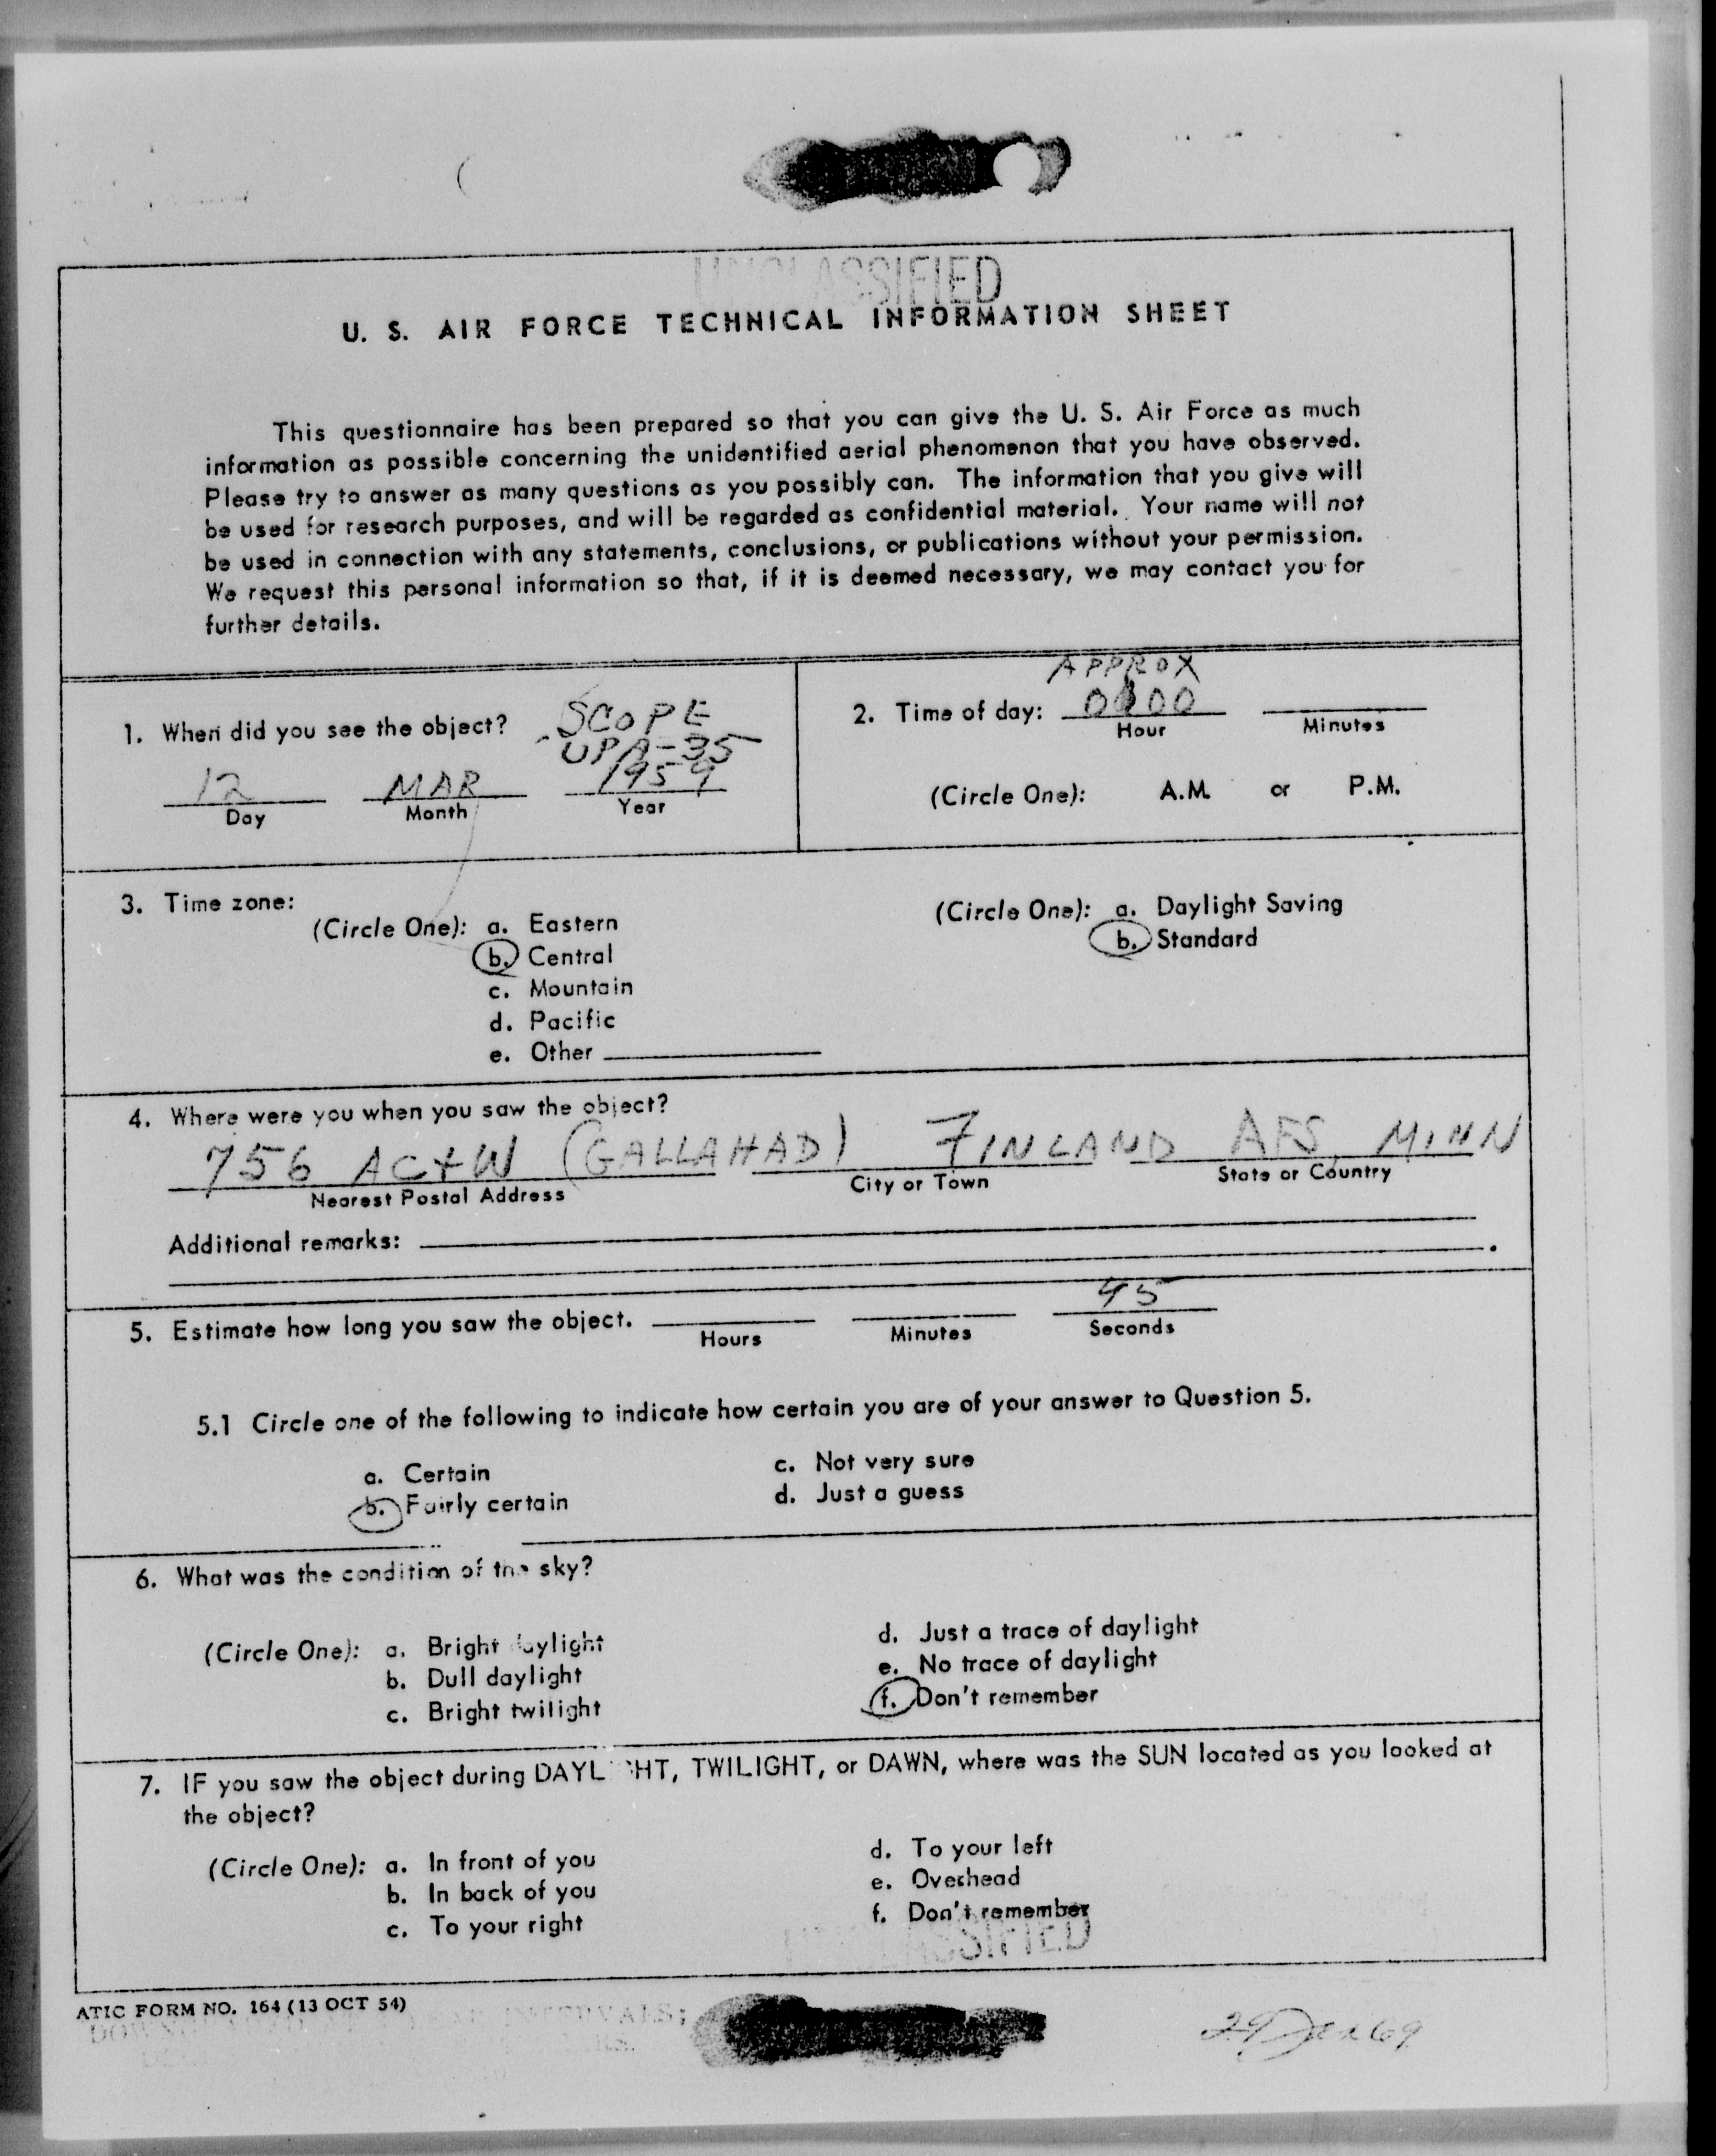 UNCLASSIFIED
U. S. AIR FORCE TECHNICAL INFORMATION SHEET
This questionnaire has been prepared so that you can give the U. S. Air Force as much
information as possible concerning the unidentified aerial phenomenon that you have observed.
Please try to answer as many questions as you possibly can. The information that you give will
be used for research purposes, and will be regarded as confidential material. Your name will not
be used in connection with any statements, conclusions, or publications without your permission.
We request this personal information so that, if it is deemed necessary, we may contact you for
further details.
1. When did you see the object?
SCOPE
UPA-35
12 MAR 1959
Day Month Year
APPROX
2. Time of day:
Hour Minutes
(Circle One): A.M. or P.M.
3. Time zone:
(Circle One): a. Eastern
b. Central
c. Mountain
d. Pacific
e. Other
(Circle One): a. Daylight Saving
b. Standard
4. Where were you when you saw the object?
756 AC+W (GALLAHAD) FINLAND AFS, MINN
Nearest Postal Address City or Town State or Country
Additional remarks:
5. Estimate how long you saw the object. 45
Hours Minutes Seconds
5.1 Circle one of the following to indicate how certain you are of your answer to Question 5.
a. Certain
b. Fairly certain
c. Not very sure
d. Just a guess
6. What was the condition of the sky?
(Circle One): a. Bright daylight
b. Dull daylight
c. Bright twilight
d. Just a trace of daylight
e. No trace of daylight
f. Don't remember
7. IF you saw the object during DAYLIGHT, TWILIGHT, or DAWN, where was the SUN located as you looked at
the object?
(Circle One): a. In front of you
b. In back of you
c. To your right
d. To your left
e. Overhead
f. Don't remember
UNCLASSIFIED
ATIC FORM NO. 164 (13 OCT 54)